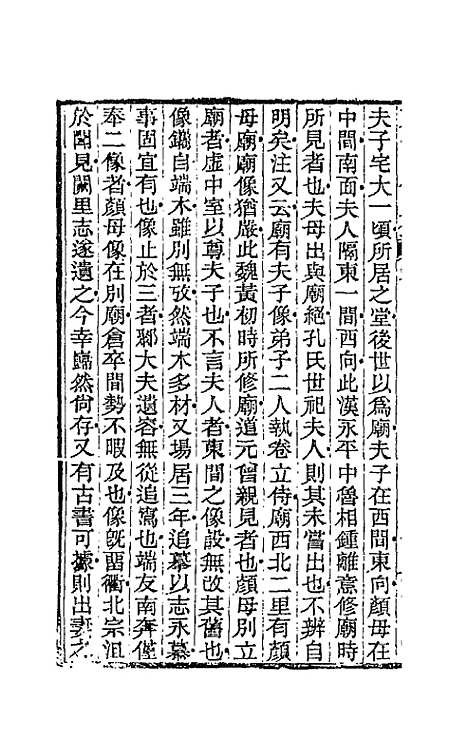 夫子宅大一頃所居之堂後世以為廟夫子在西間東向顏母在
中間南面夫人隔東一間西向此漢永平中魯相鍾離意修廟時
所見者也夫母出與廟絕孔氏世祀夫人則其未嘗出也不辨自
明矣注又云廟有夫子像弟子二人執卷立侍廟西北二里有顏
母廟廟像猶嚴此魏黃初時所修廟道元曾親見者也顏母別立
廟者虛中室以尊夫子也不言夫人者東間之像設無改其舊也
像鐫自端木雖別無攷然端木多材又場居三年追慕以志永慕
事固宜有也像止於三者鄹大夫遺容無從追寫也端友南奔僅
奉二像者顏母像在別廟倉卒間勢不暇及也像既畱衢北宗沮
於聞見闕里志遂遺之今幸巋然尚存又有古書可據則出妻之